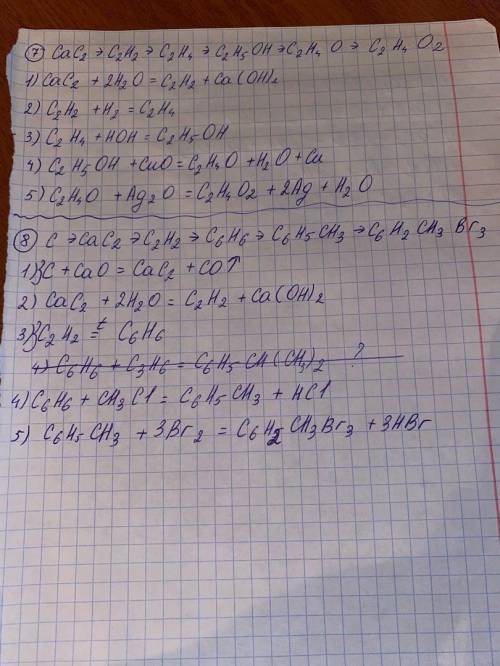 7 CaC2 → C2H2 → C2H4 → C2H5OH → C2H4O → C2H4O2
1) CaC2 + 2H2O = C2H2 + Ca(OH)2
2) C2H2 + H2 = C2H4
3) C2H4 + HOH = C2H5OH
4) C2H5OH + CuO = C2H4O + H2O + Cu
5) C2H4O + Ag2O = C2H4O2 + 2Ag + H2O
8 C → CaC2 → C2H2 → C6H6 → C6H5CH3 → C6H2CH3Br3
1) 3C + CaO = CaC2 + CO↑
2) CaC2 + 2H2O = C2H2 + Ca(OH)2
3) 3C2H2 =t C6H6
4) C6H6 + C3H6 = C6H5-CH(CH3)2 ?
4) C6H6 + CH3Cl = C6H5CH3 + HCl
5) C6H5CH3 + 3Br2 = C6H2CH3Br3 + 3HBr